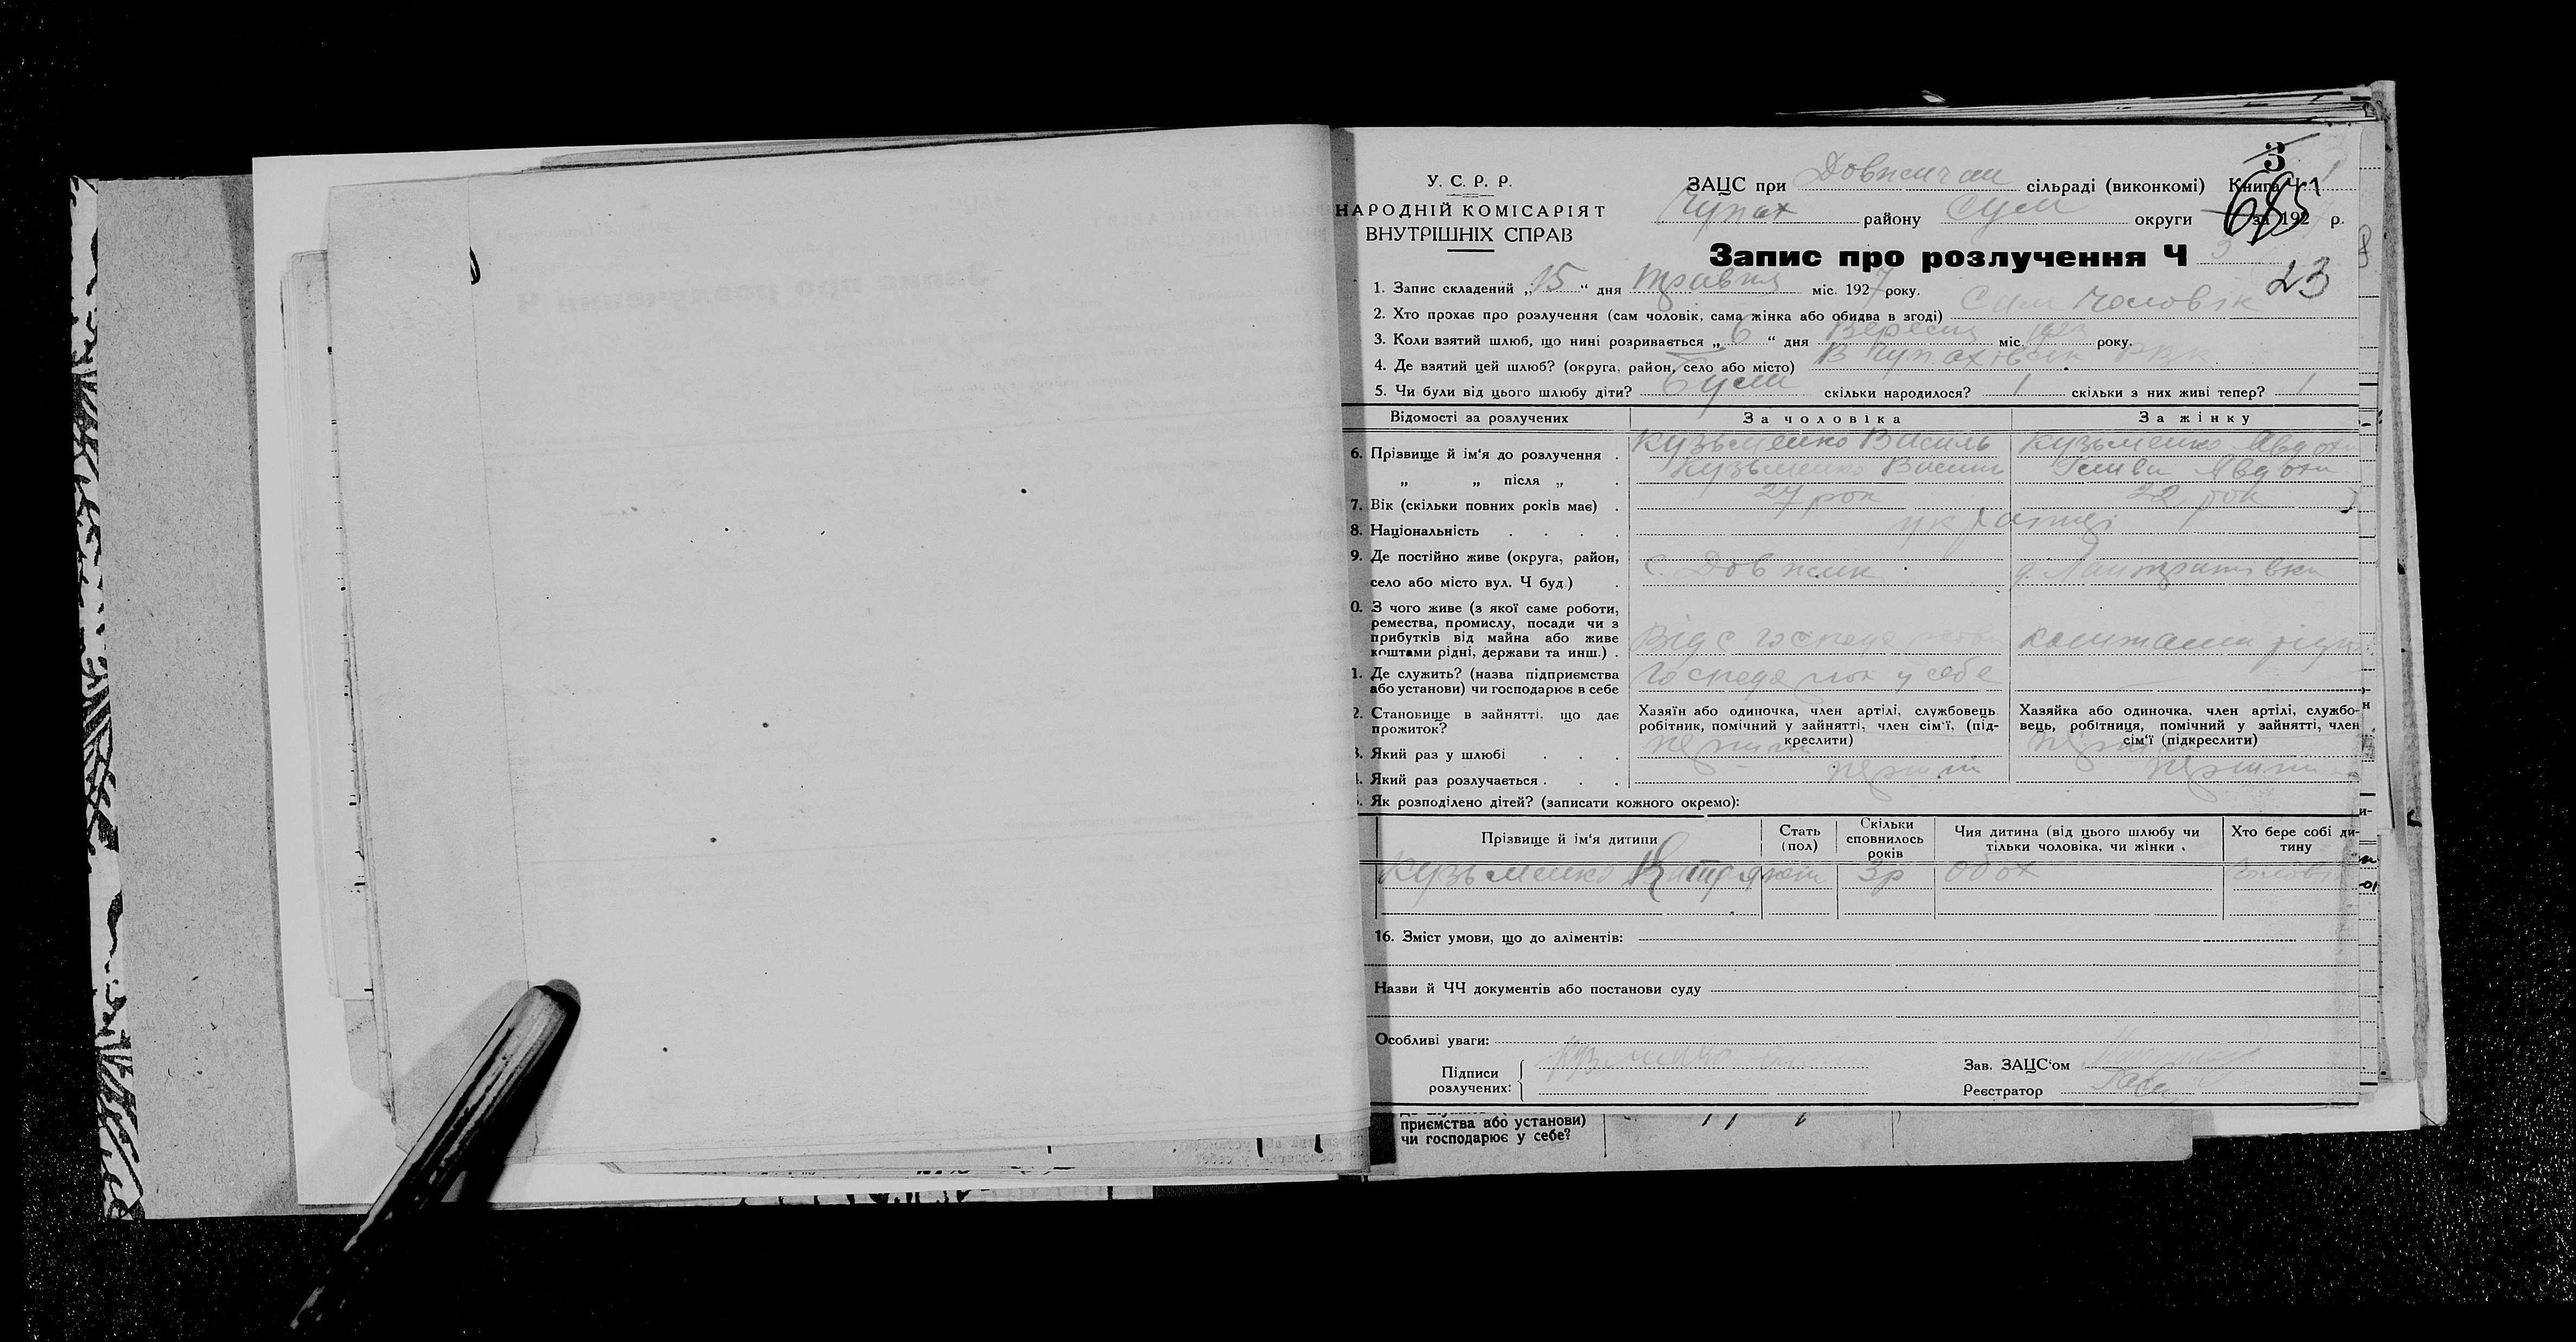 3
У. С. Р. Р.
НАРОДНІЙ КОМІСАРІЯТ
ВНУТРІШНІХ СПРАВ
ЗАЦС при Довжичан сільраді (виконкомі) Книга Ч. 1
Чупах району Сум округи за 192 р.
685
Запис про розлучення Ч 3
23
1. Запис складений „15“ дня травня міс. 1927 року.
2. Хто прохає про розлучення (сам чоловік, сама жінка або обидва в згоді) Сам чоловік
3. Коли взятий шлюб, що нині розривається „6“ дня Вересня міс. 1923 року.
4. Де взятий цей шлюб? (округа, район, село або місто) В Чупахівськ РВК
5. Чи були від цього шлюбу діти? були скільки народилося? 1 скільки з них живі тепер? 1
Відомості за розлучених За чоловіка За жінку
6. Прізвище й ім'я до розлучення . Кузьменко Василь Кузьменко Авдотя
„ „ після „ . Кузьменко Василь Авдотя
7. Вік (скільки повних років має) . 27 рок 22 рок
8. Національність . . . . українці
9. Де постійно живе (округа, район,
село або місто вул. Ч буд) . с. Довжик
0. З чого живе (з якої саме роботи,
ремества, промислу, посади чи з
прибутків від майна або живе
коштами рідні, держави та инш.) . Від с господарства коштами рідні
1. Де служить? (назва підприємства
або установи) чи господарює в себе Господарює у себе
2. Становище в зайнятті, що дає
прожиток?
Хазяїн або одиночка, член артілі, службовець
робітник, помічний у зайнятті, член сім'ї, (під-
креслити)
Хазяйка або одиночка, член артілі, службо-
вець, робітниця, помічний у зайнятті, член
сім'ї (підкреслити)
3. Який раз у шлюбі . . . перший
. Який раз розлучається . . . перший перший
. Як розподілено дітей? (записати кожного окремо):
Прізвище й ім'я дитини
Стать
(пол)
Скільки
сповнилось
років
Чия дитина (від цього шлюбу чи
тільки чоловіка, чи жінки .
Хто бере собі ди-
тину
Кузьменко жен 3р Обох чоловік
16. Зміст умови, що до аліментів:
Назви й ЧЧ документів або постанови суду
Особливі уваги:
Підписи
розлучених: Кузьменко
Зав. ЗАЦС'ом
Реєстратор
приємства або установи)
чи господарює у себе?